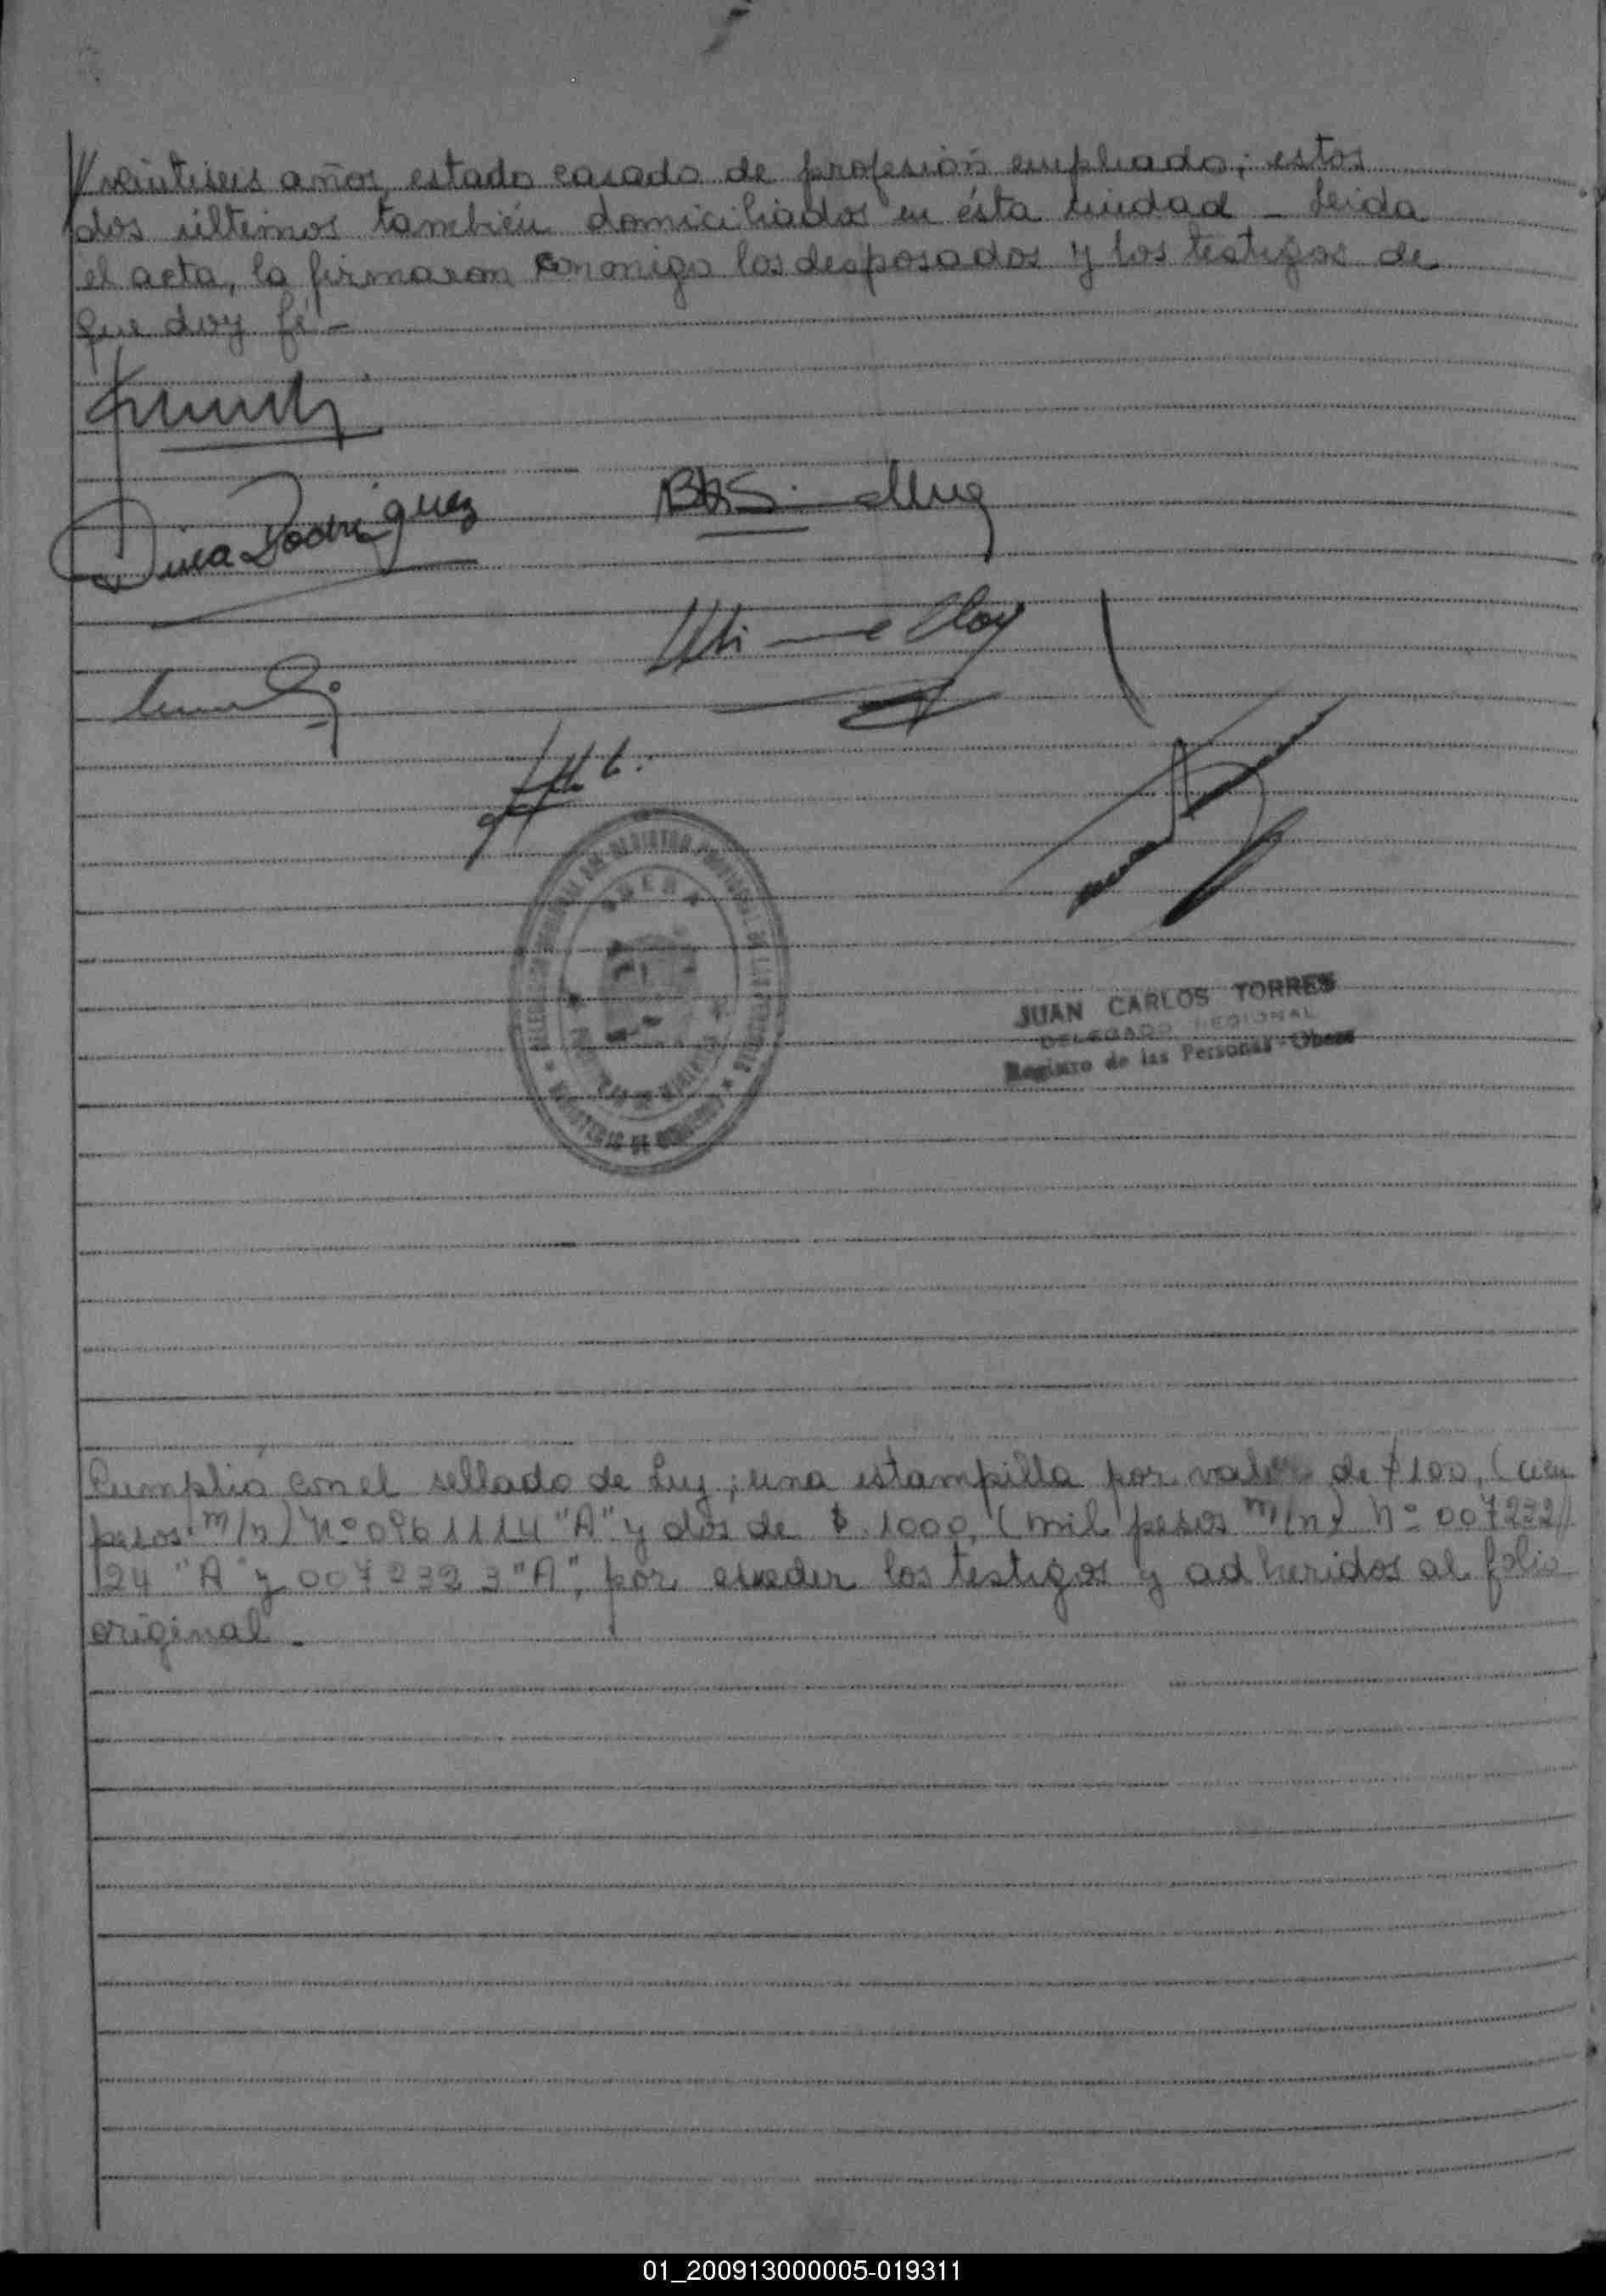 veintiseis años, estado casado de profesión empleado; estos
dos últimos también domiciliados en ésta ciudad _ Leida
el acta, la firmaron conmigo los desposados y los testigos de
que doy fé -
Dina Rodriguez
JUAN CARLOS TORRES
DELEGADO REGIONAL
Registro de las Personas - Oberá
MINISTERIO DE GOBIERNO
Cumplió con el sellado de Ley; una estampilla por valor de $100, (cien
pesos m/n) Nº 0961114 "A" y dos de $ 1000, (mil pesos m/n) Nº 007232//
124 "A" y 0072323 "A", por exceder los testigos y adheridos al folio
original.-
01_200913000005-019311